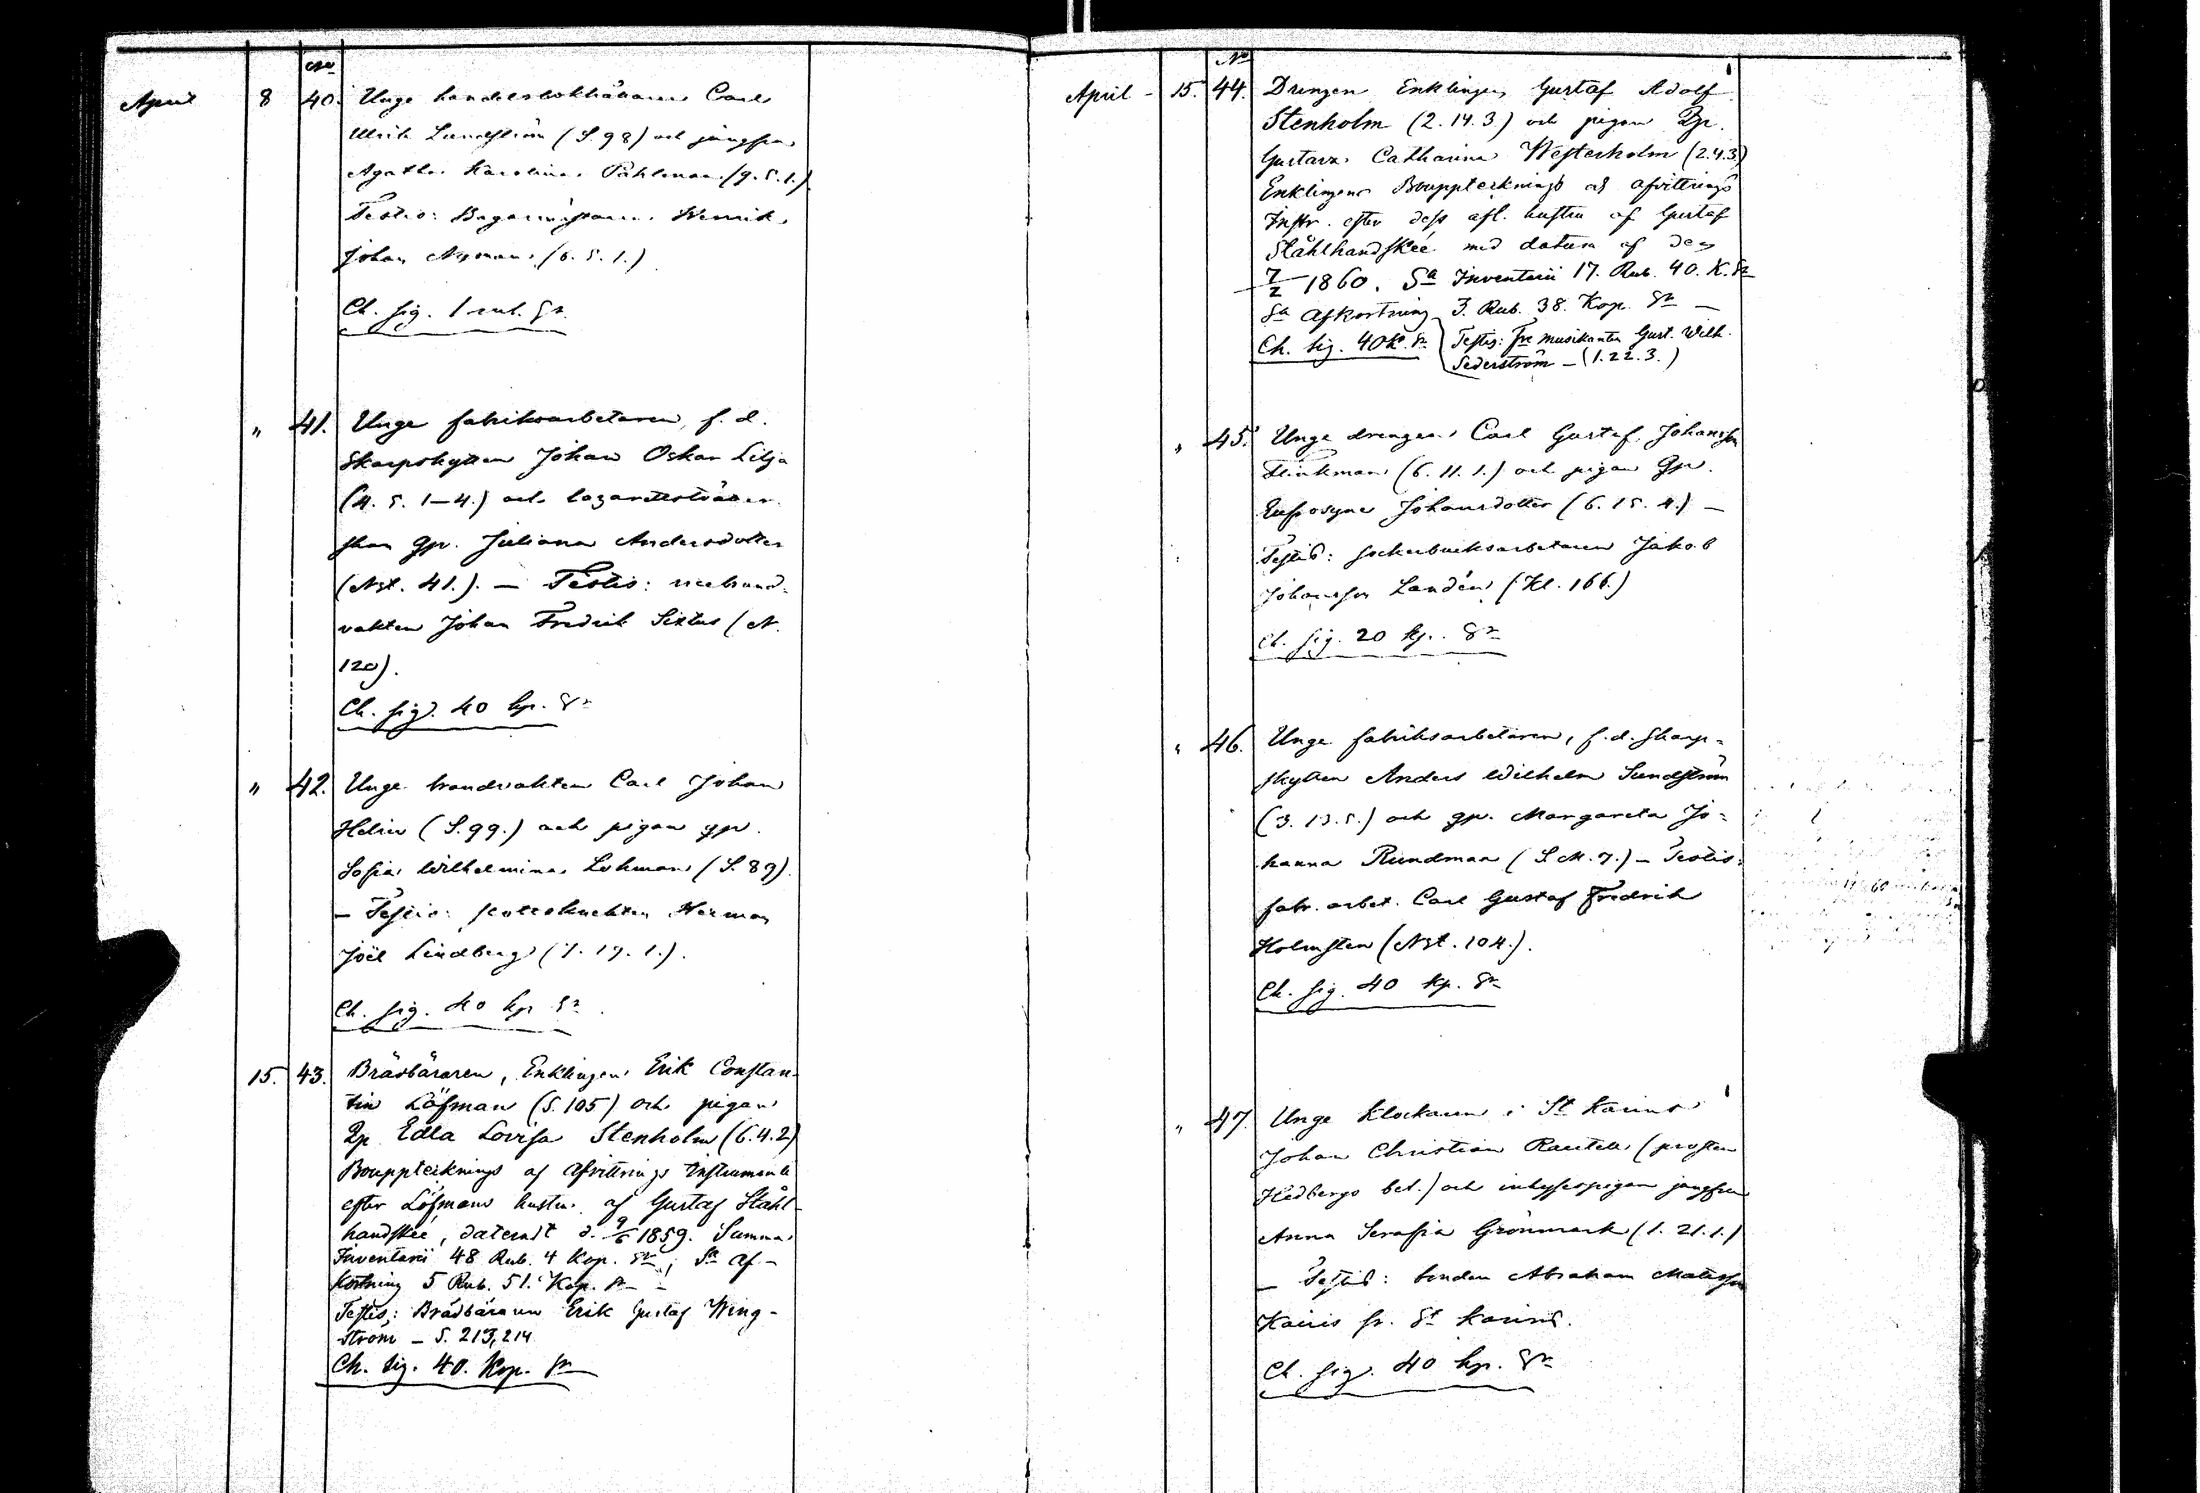 No
April 8 40. Unge handelsbokhållaren Carl
Ulrik Lundström (S. 98) och jungfru
Agatha Karolina Påhlman (9. 5. 1.)
Testis: Bagaremästaren Henrik
Johan Nyman (6. 5. 1.)
Ch. sig. 1 rub. Sr
" 41. Unge fabriksarbetaren, f. d.
Skarpskytten Johan Oskar Lilja
(4. 5. 1–4.) och lazarettsträder
skan gp. Juliana Andersdotter
(Nst. 41.). — Testis: vicebrand-
vakten Johan Fredrik Sixtus (N.
120).
Ch. sig. 40 kp. Sr
" 42. Unge brandvakten Carl Johan
Helin (S. 99.) och pigan gp.
Sofia Wilhelmina Lohman (S. 89)
— Testis: Herman
Joël Lindberg (7. 19. 1.).
Ch. sig. 40 kp Sr
15. 43. Brädbäraren, Enklingen Erik Constan-
tin Löfman (S. 105) och pigan
Qp. Edla Lovisa Stenholm (6. 4. 2)
Bouppteknings af afvittrings Instrument
efter Löfmans hustru af Gustaf Stål-
handskeé, dateradt d. 9/6 1859. Summa
Inventarii 48 Rub. 4 Kop. Sr; Sa af-
kortning 5 Rub. 51. Kop. Sr —
Testis: Brädbäraren Erik Gustaf Wing-
ström — S. 213, 214
Ch. sig. 40. Kop. Sr
No
April - 15. 44. Drengen Enklingen Gustaf Adolf
Stenholm (2. 14. 3) och pigan Qp.
Gustava Catharina Westerholm (2. 4. 3)
Enklingens Bouppteknings af afvittrings
Instr. efter dess afl. hustru af Gustaf
Stålhandskeé med datum af den
7/2 1860. Sa Inventarii 17. Rub. 40. K. Sr
Sa Afkortning 3. Rub. 38. Kop. Sr —
Ch. Sig. 40 K. Sr Testis: Fre musikanten Gust. Wilh.
Sederström — (1. 22. 3.)
" 45. Unge drengen Carl Gustaf Johansson
Flinkman (6. 11. 1.) och pigan Gp.
Eufrosyne Johansdotter (6. 15. 4.) —
Testis: sockerbruksarbetaren Jakob
Johansson Landén (Kl. 166.)
Ch. sig. 20 kp. Sr
" 46. Unge fabriksarbetaren, f. d. Skarp-
skytten Anders Wilhelm Sundström
(3. 13. 5.) och gp. Margareta Jo-
hanna Rundman (S. M. 7.) — Testis:
fabr. arbet. Carl Gustaf Fredrik
Holmsten (Nst. 104.).
Ch. sig. 40 kp. Sr
" 47. Unge klockaren i St Karins
Johan Christian Rautell (prosten
Hedbergs bet.) och inhysespigan jungfru
Anna Serafia Grönmark (1. 21. 1.)
— Testis: bonden Abraham Matsson
Kairis fr. St Karins.
Ch. sig. 40 kp. Sr